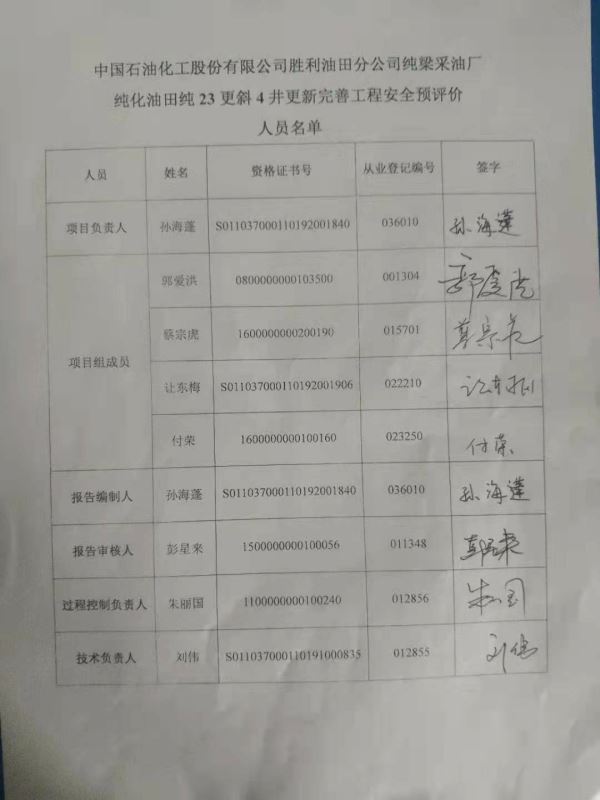 中国石油化工股份有限公司胜利油田分公司纯梁采油厂
纯化油田纯 23 更斜 4 井更新完善工程安全预评价
人员名单
人员 姓名 资格证书号 从业登记编号 签字
项目负责人 孙海蓬 S011037000110192001840 036010 孙海蓬
郭爱洪 0800000000103500 001304
蔡宗虎 1600000000200190 015701
项目组成员
让东梅 S011037000110192001906 022210 让东梅
付荣 1600000000100160 023250 付荣
报告编制人 孙海蓬 S011037000110192001840 036010 孙海蓬
报告审核人 彭星来 1500000000100056 011348 彭星来
过程控制负责人 朱丽国 1100000000100240 012856
技术负责人 刘伟 S011037000110191000835 012855 刘伟